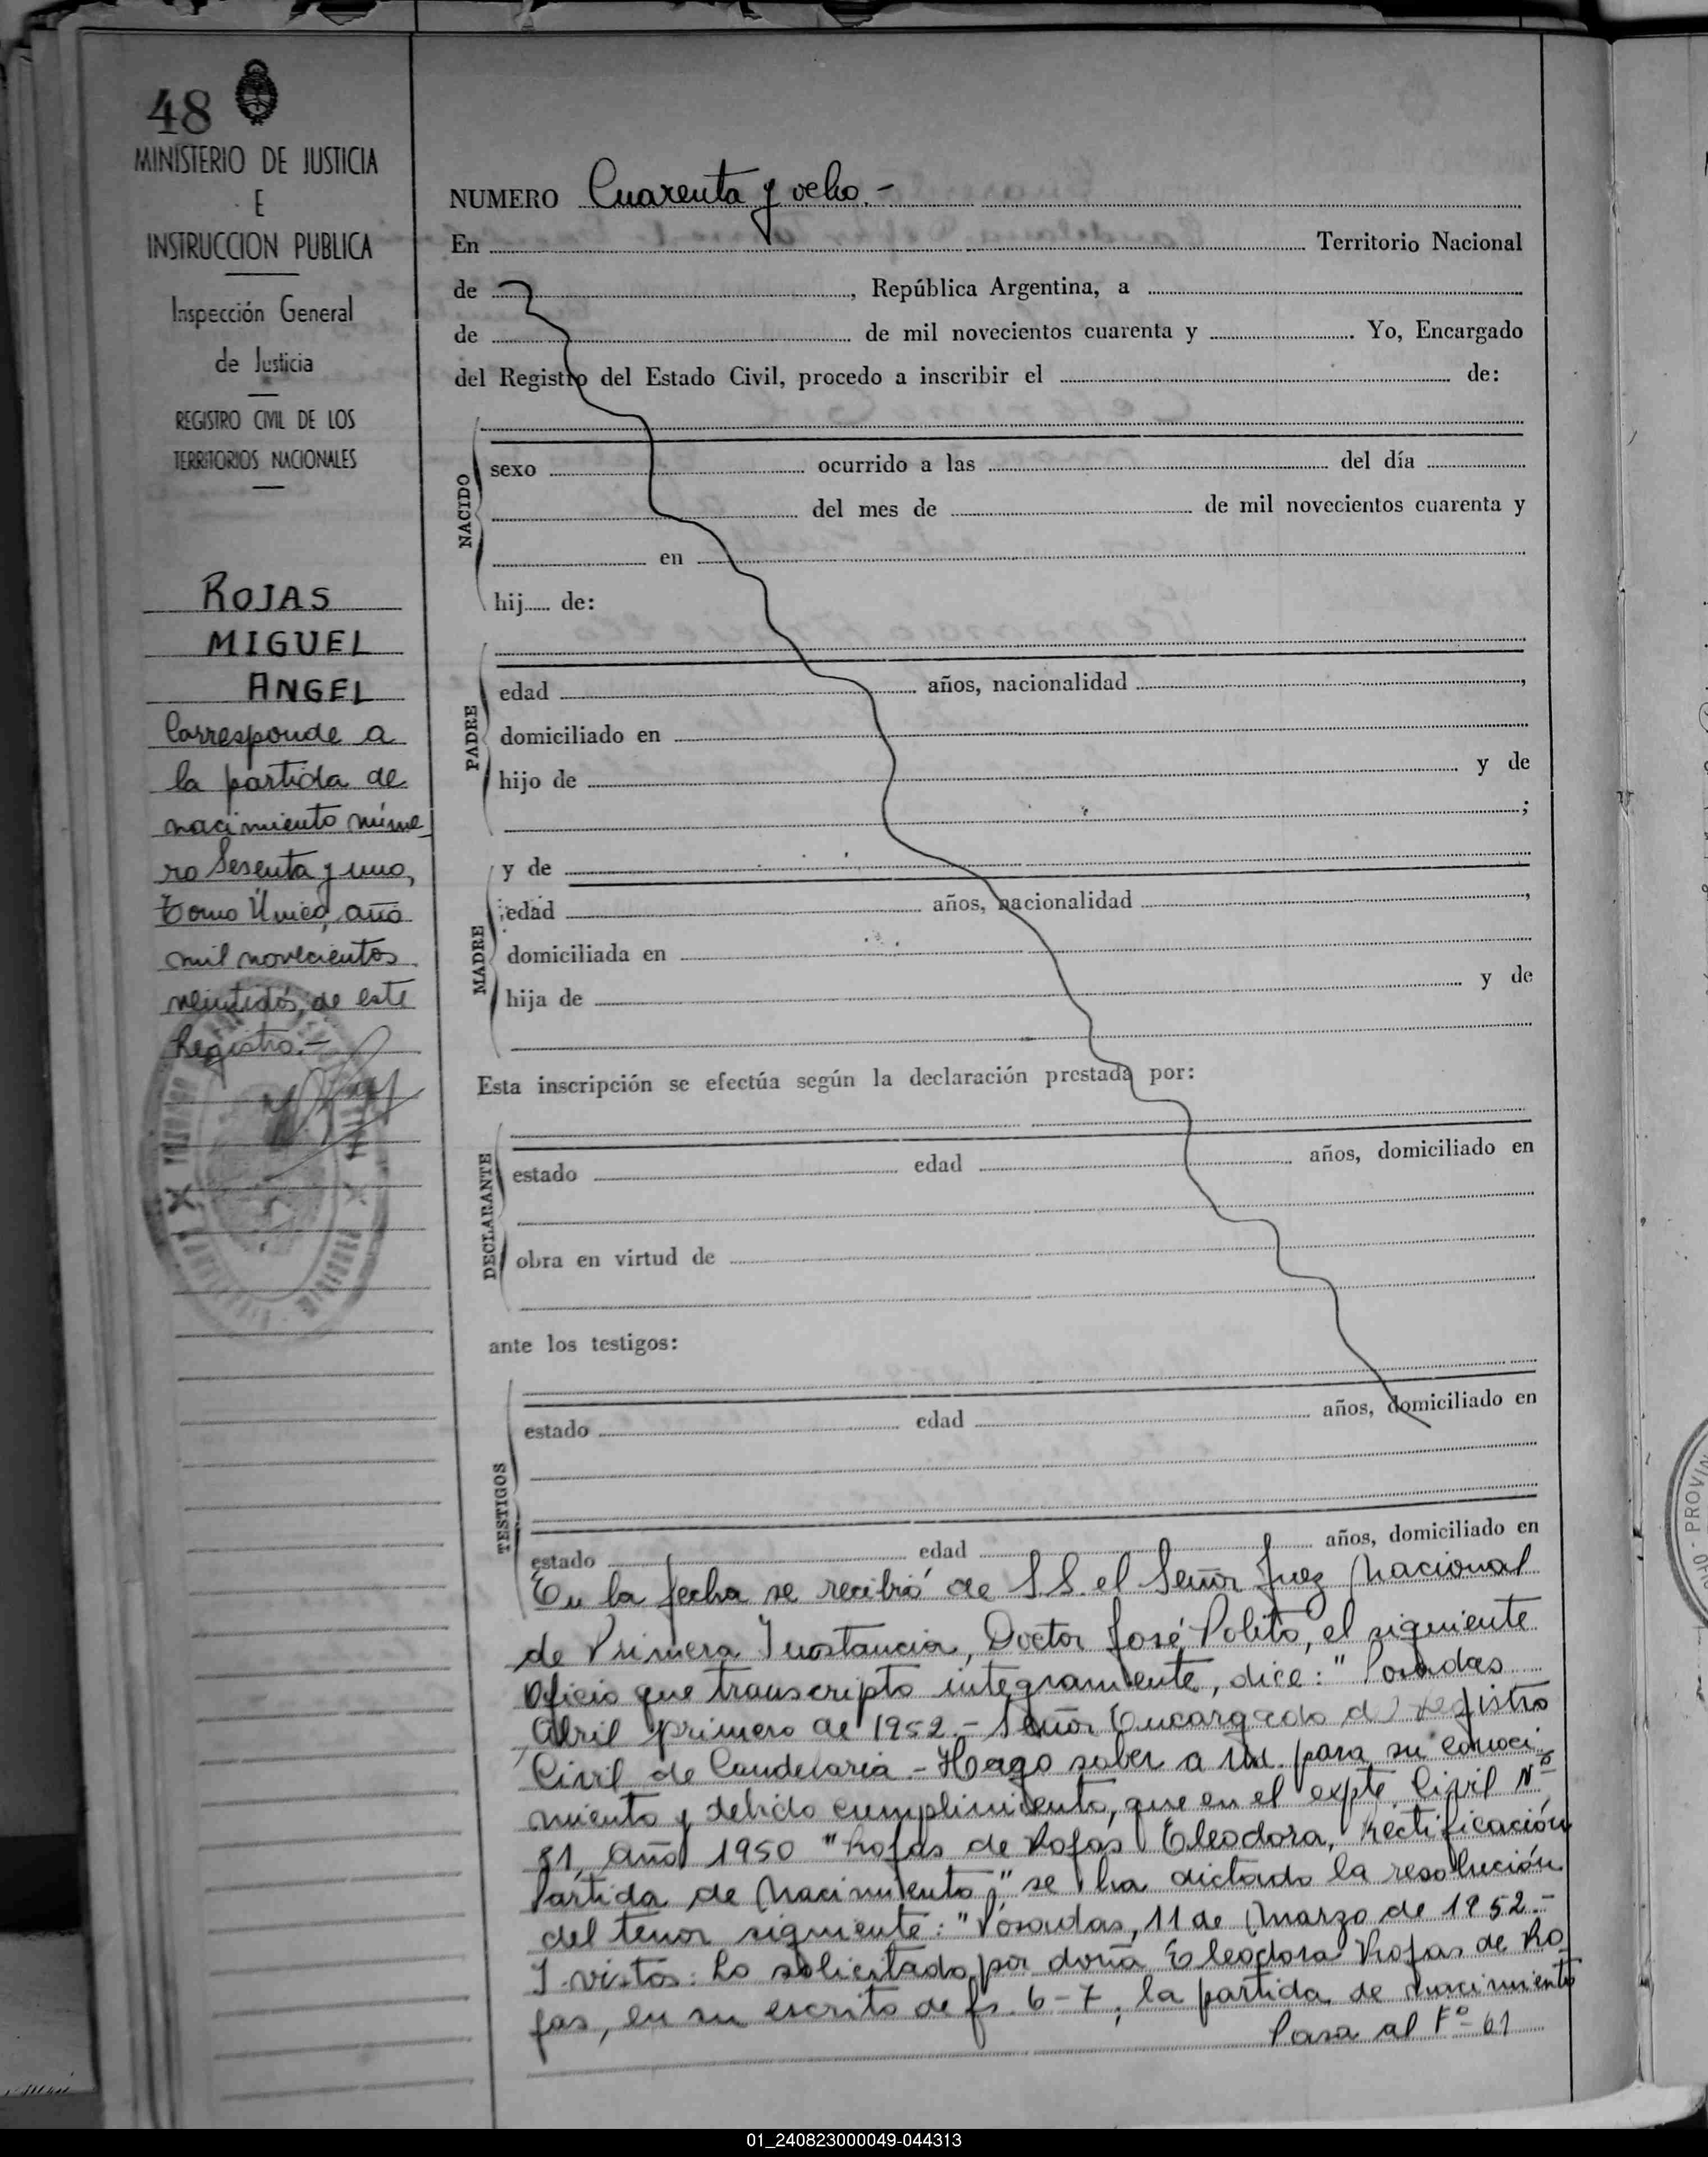 48
MINISTERIO DE JUSTICIA
E
INSTRUCCION PUBLICA
Inspección General
de Justicia
REGISTRO CIVIL DE LOS
TERRITORIOS NACIONALES
ROJAS
MIGUEL
ANGEL
Corresponde a
la partida de
nacimiento núme
ro Sesenta y uno,
Tomo Único, año
mil novecientos
veintidós, de este
Registro.-
NUMERO Cuarenta y ocho.-
En Territorio Nacional
de , República Argentina, a
de de mil novecientos cuarenta y . Yo, Encargado
del Registro del Estado Civil, procedo a inscribir el de:
NACIDO
sexo ocurrido a las del día
del mes de de mil novecientos cuarenta y
en
hij de:
PADRE
edad años, nacionalidad ,
domiciliado en
hijo de y de
;
MADRE
y de
edad años, nacionalidad ,
domiciliada en
hija de y de
Esta inscripción se efectúa según la declaración prestada por:
DECLARANTE
estado edad años, domiciliado en
obra en virtud de
ante los testigos:
TESTIGOS
estado edad años, domiciliado en
estado edad años, domiciliado en
En la fecha se recibió de S.S. el Señor Juez Nacional
de Primera Instancia, Doctor José Polito, el siguiente
Oficio que transcripto integramente, dice: "Posadas
Abril primero de 1952.- Señor Encargado del Registro
Civil de Candelaria.- Hago saber a Ud. para su conoci
miento y debido cumplimiento, que en el expte. Civil Nº
81, Año 1950 "Rojas de Rojas Eleodora, Rectificación
Partida de Nacimiento," se ha dictado la resolución
del tenor siguiente: "Posadas, 11 de Marzo de 1952.-
Y vistos: Lo solicitado por doña Eleodora Rojas de Ro
jas, en su escrito de fs. 6-7, la partida de nacimiento
Pasa al Fº 61
PROVIN
01_240823000049-044313